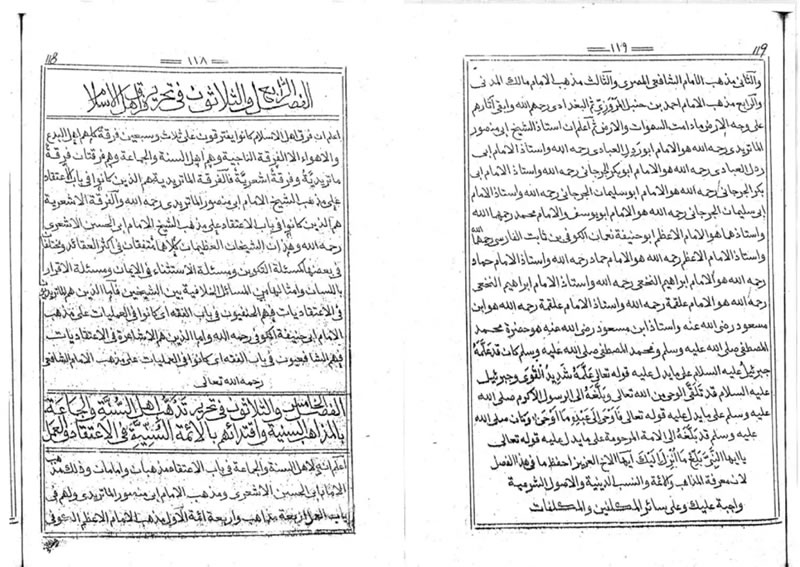 118
١١٨
الفصل الرابع والثلاثون في تحرير فرق اهل الاسلام
اعلم ان فرق اهل الاسلام كانوا يفترقون على ثلاث وسبعين فرقة كلهم اهل البدع
والاهواء الا الفرقة الناجية وهم اهل السنة والجماعة وهم فرقتان فرقة
ماتريدية وفرقة اشعرية فالفرقة الماتريدية هم الذين كانوا في باب الاعتقاد
على مذهب الشيخ الامام ابي منصور الماتريدي رحمه الله والفرقة الاشعرية
هم الذين كانوا في باب الاعتقاد على مذهب الشيخ الامام ابي الحسين الاشعري
رحمه الله وهذان الشيخان العظيمان كلاهما متفقان في اكثر العقائد ويختلفان
في بعضها كمسئلة التكوين ومسئلة الاستثناء في الايمان ومسئلة الاقرار
باللسان وامثالها من المسائل الخلافية بين الشيخين فاما الذين هم الماتريدي
في الاعتقاديات فهم الحنفيون في باب الفقه اي كانوا في العمليات على مذهب
الامام ابي حنيفة الكوفي رحمه الله واما الذين هم الاشاعرة في الاعتقاديات
فهم الشافعيون في باب الفقه اي كانوا في العمليات على مذهب الامام الشافعي
رحمه الله تعالى
الفصل الخامس والثلاثون في تحرير تذهب اهل السنة والجماعة
بالمذاهب السنية واقتدائهم بالائمة السنية في الاعتقاد والعمل
اعلم ان لاهل السنة والجماعة في باب الاعتقاد مذهبان وامامان وذلك مذهب
الامام ابي الحسين الاشعري ومذهب الامام ابي منصور الماتريدي ولهم في
باب العمل اربعة مذاهب واربعة ائمة الاول مذهب الامام الاعظم الكوفي
119
١١٩
والثاني مذهب الامام الشافعي المصري والثالث مذهب الامام مالك المدني
والرابع مذهب الامام احمد بن حنبل المروزي ثم البغدادي رحمهم الله وابقى آثارهم
على وجه الارض ما دامت السموات والارض ثم اعلم ان استاذ الشيخ ابي منصور
الماتريدي رحمه الله هو الامام ابو زدل العبادي رحمه الله واستاذ الامام ابي
زدل العبادي رحمه الله هو الامام ابو بكر الجرجاني رحمه الله واستاذ الامام ابي
بكر الجرجاني رحمه الله هو الامام ابو سليمان الجرجاني رحمه الله واستاذ الامام
ابي سليمان الجرجاني رحمه الله هو الامام ابو يوسف والامام محمد رحمهما الله
واستاذهما هو الامام الاعظم ابو حنيفة نعمان الكوفي بن ثابت الفارسي رحمهما الله
واستاذ الامام الاعظم رحمه الله هو الامام حماد رحمه الله واستاذ الامام حماد
رحمه الله هو الامام ابراهيم النخعي رحمه الله واستاذ الامام ابراهيم النخعي
رحمه الله هو الامام علقمة رحمه الله واستاذ الامام علقمة رحمه الله هو ابن
مسعود رضي الله عنه واستاذ ابن مسعود رضي الله عنه هو حضرة محمد
المصطفى صلى الله عليه وسلم ومحمد المصطفى صلى الله عليه وسلم كان قد علمه
جبرئيل عليه السلام على ما يدل عليه قوله تعالى علمه شديد القوى وجبرئيل
عليه السلام قد تلقى الوحي من الله تعالى وبلغه الى الرسول الاكرم صلى الله
عليه وسلم على ما يدل عليه قوله تعالى فاوحى الى عبده ما اوحى وكان صلى الله
عليه وسلم قد بلغه الى الامة المرحومة على ما يدل عليه قوله تعالى
يا ايها النبي بلغ ما انزل اليك ايها الاخ العزيز احفظ ما في هذا الفصل
لان معرفة المذاهب والائمة والنسب الدينية والاصول الشرعية
واجبة عليك وعلى سائر المكلفين والمكلفات